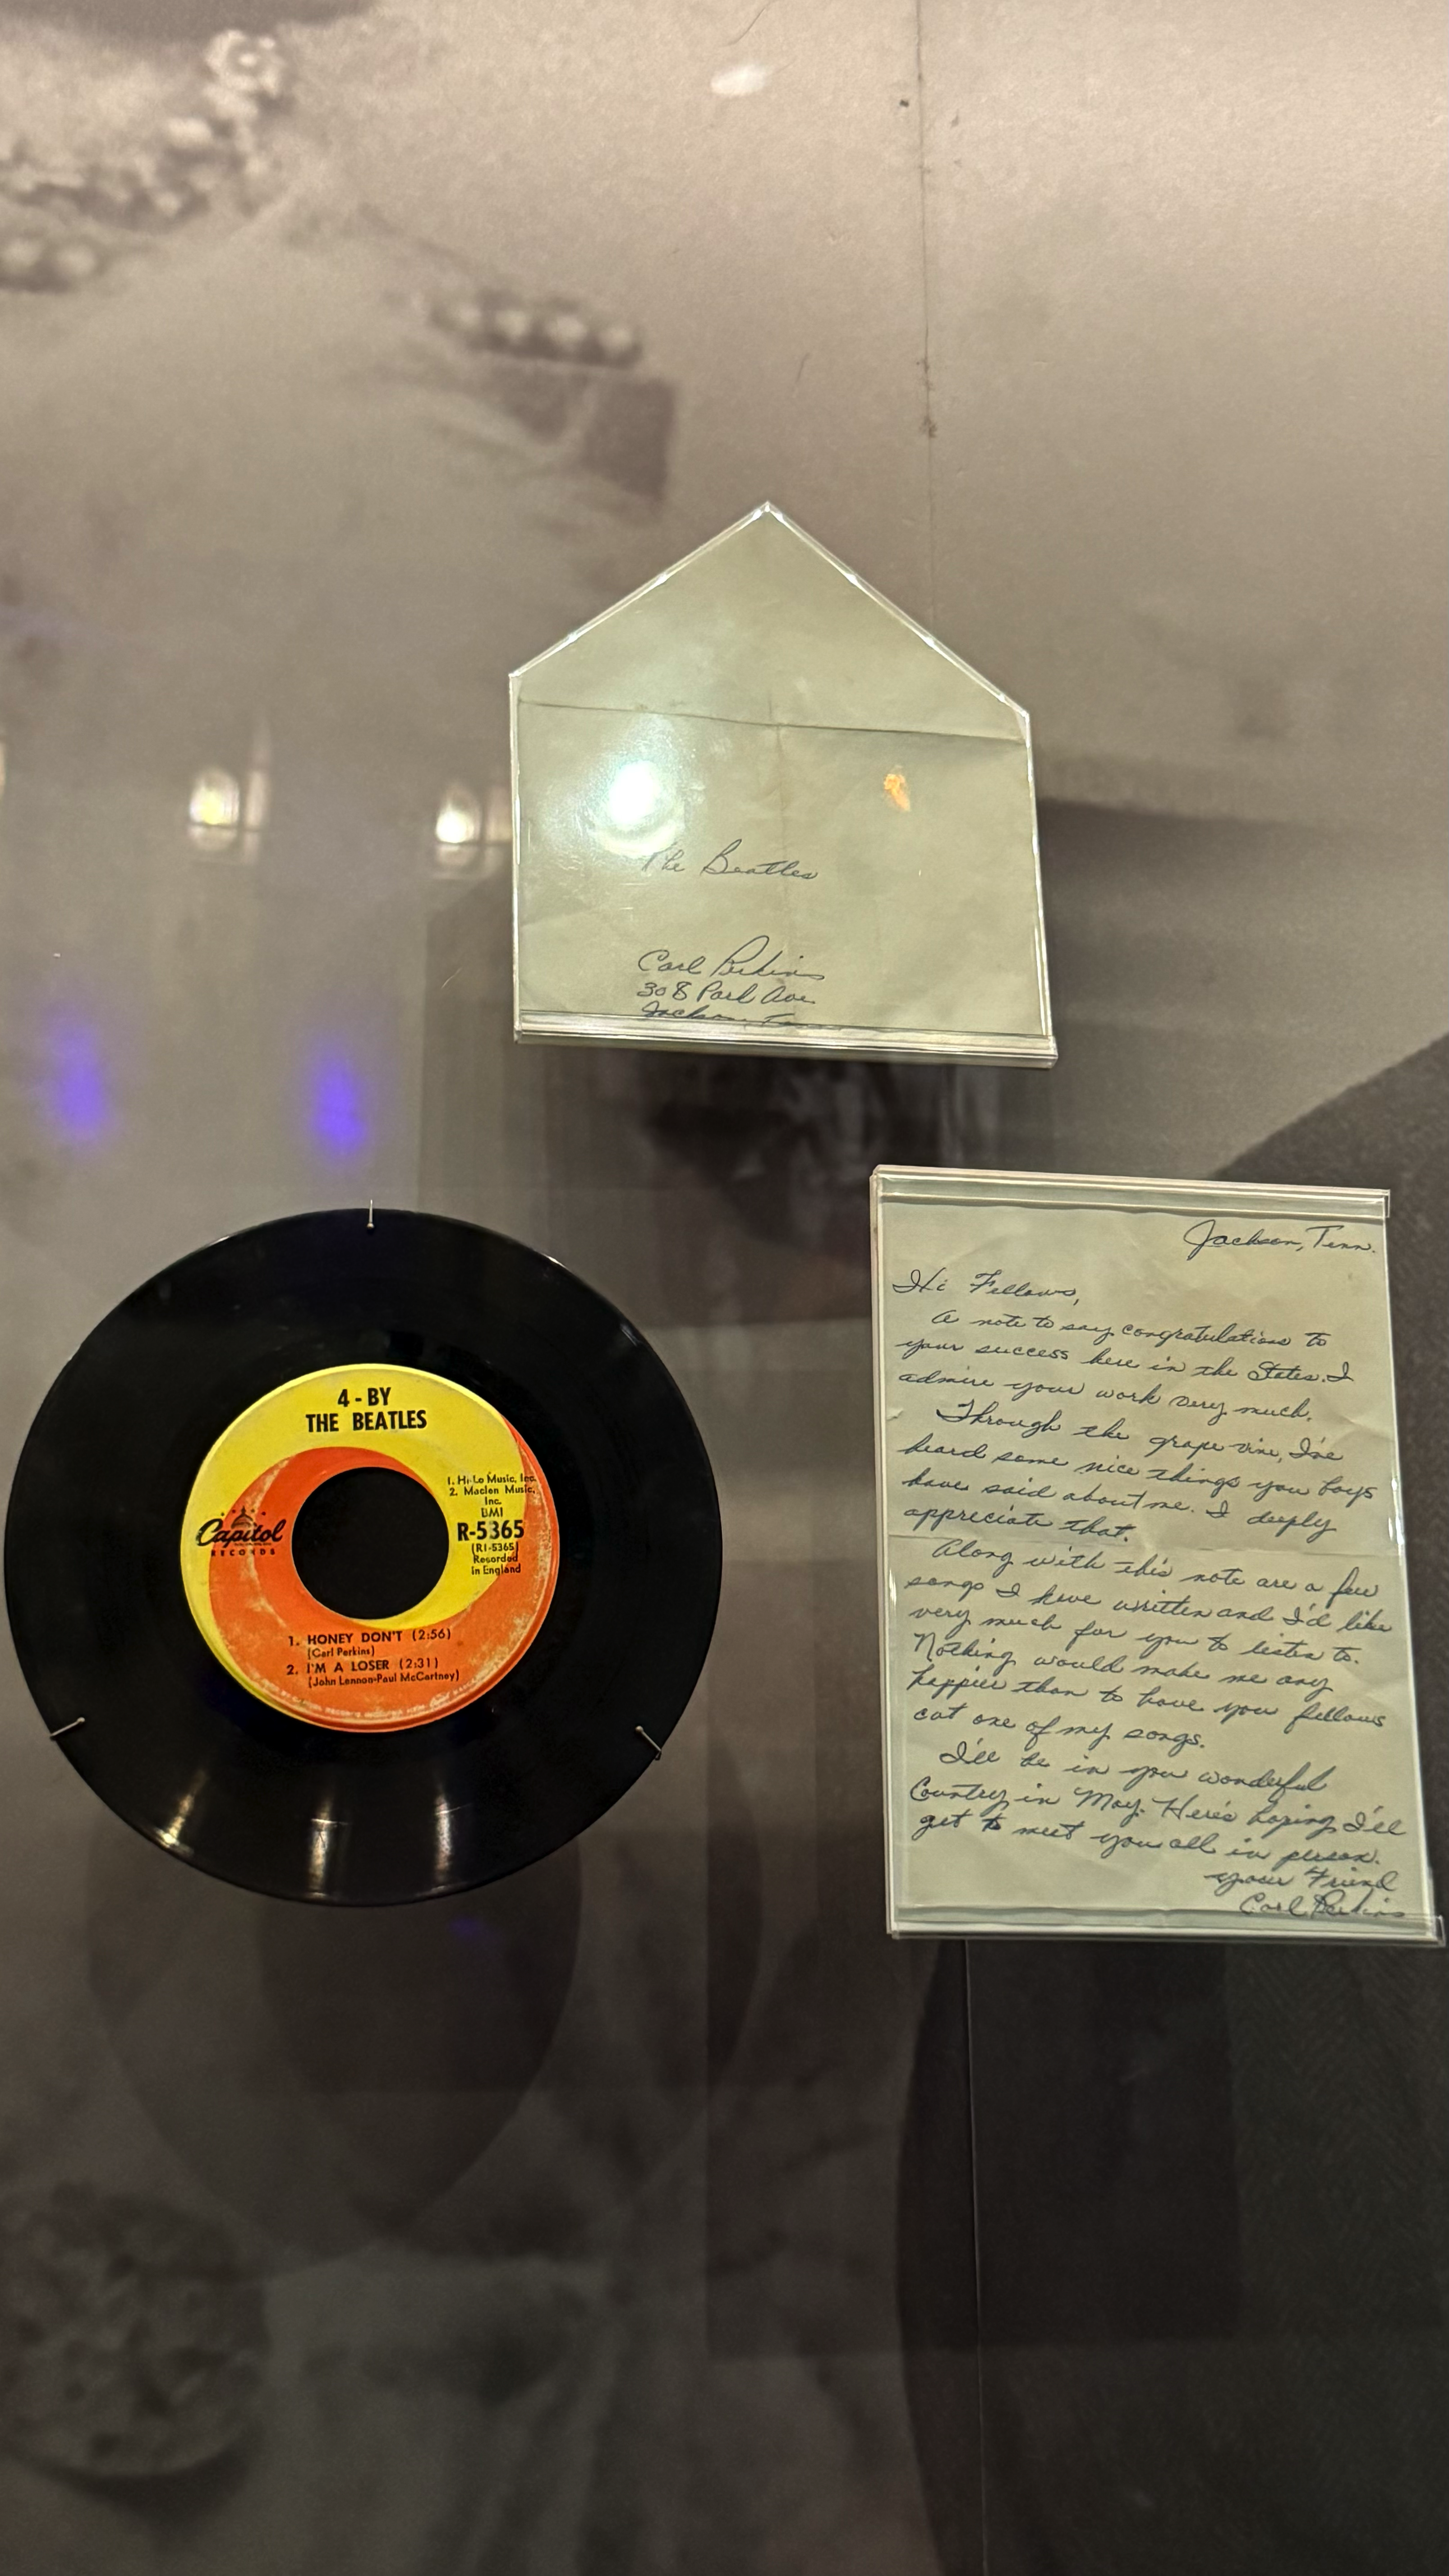 The Beatles
Carl Perkins
308 Park Ave
Jackson, Tenn
4-BY
THE BEATLES
1. Hi-Lo Music, Inc.
2. Maclen Music,
Inc.
BMI
R-5365
(R1-5365)
Recorded
in England
Capitol
RECORDS
1. HONEY DON'T (2:56)
(Carl Perkins)
2. I'M A LOSER (2:31)
(John Lennon-Paul McCartney)
Jackson, Tenn.
Hi Fellows,
A note to say congratulations to
your success here in the States. I
admire your work very much.
Through the grape vine, I've
heard some nice things you boys
have said about me. I deeply
appreciate that.
Along with this note are a few
songs I have written and I'd like
very much for you to listen to.
Nothing would make me any
happier than to have you fellows
cut one of my songs.
I'll be in you wonderful
Country in May. Here's hoping I'll
get to meet you all in person.
your Friend
Carl Perkins